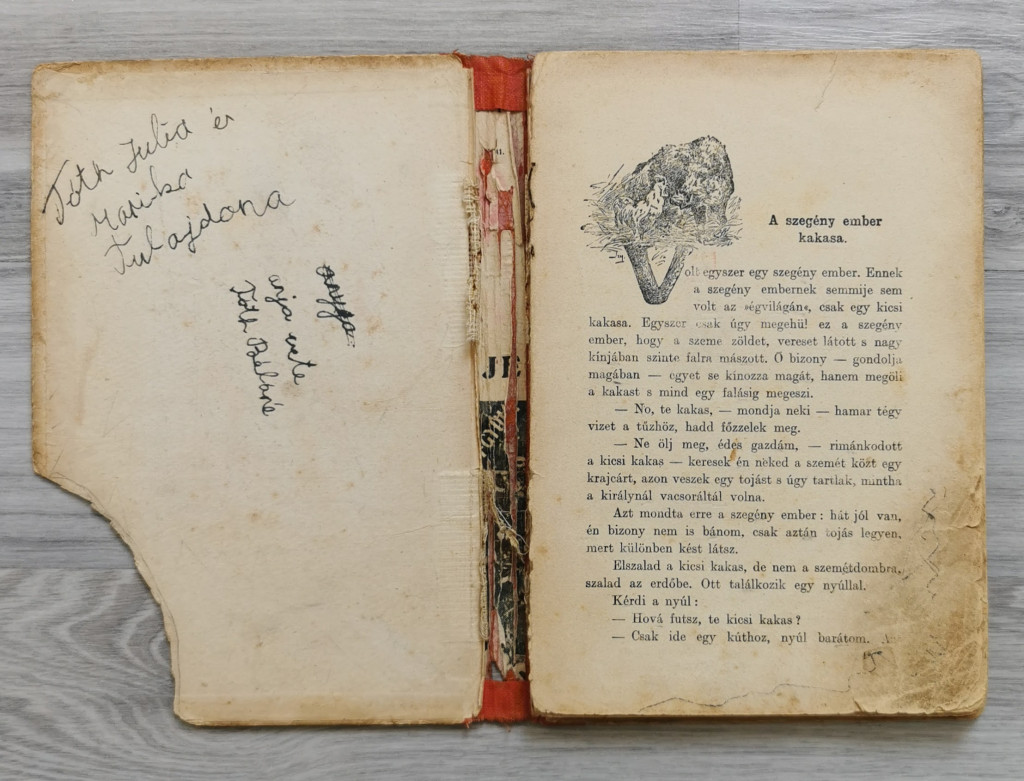 Tóth Julia és
Marika
Tulajdona
anyja
anyja vete
Tóth Béláné
JE
A szegény ember
kakasa.
Volt egyszer egy szegény ember. Ennek
a szegény embernek semmije sem
volt az »égvilágán«, csak egy kicsi
kakasa. Egyszer csak úgy megehül ez a szegény
ember, hogy a szeme zöldet, vereset látott s nagy
kínjában szinte falra mászott. Ő bizony — gondolja
magában — egyet se kínozza magát, hanem megöli
a kakast s mind egy falásig megeszi.
— No, te kakas, — mondja neki — hamar tégy
vizet a tűzhöz, hadd főzzelek meg.
— Ne ölj meg, édes gazdám, — rimánkodott
a kicsi kakas — keresek én neked a szemét közt egy
krajcárt, azon veszek egy tojást s úgy tartlak, mintha
a királynál vacsoráltál volna.
Azt mondta erre a szegény ember: hát jól van,
én bizony nem is bánom, csak aztán tojás legyen,
mert különben kést látsz.
Elszalad a kicsi kakas, de nem a szemétdombra,
szalad az erdőbe. Ott találkozik egy nyúllal.
Kérdi a nyúl:
— Hová futsz, te kicsi kakas?
— Csak ide egy kúthoz, nyúl barátom.